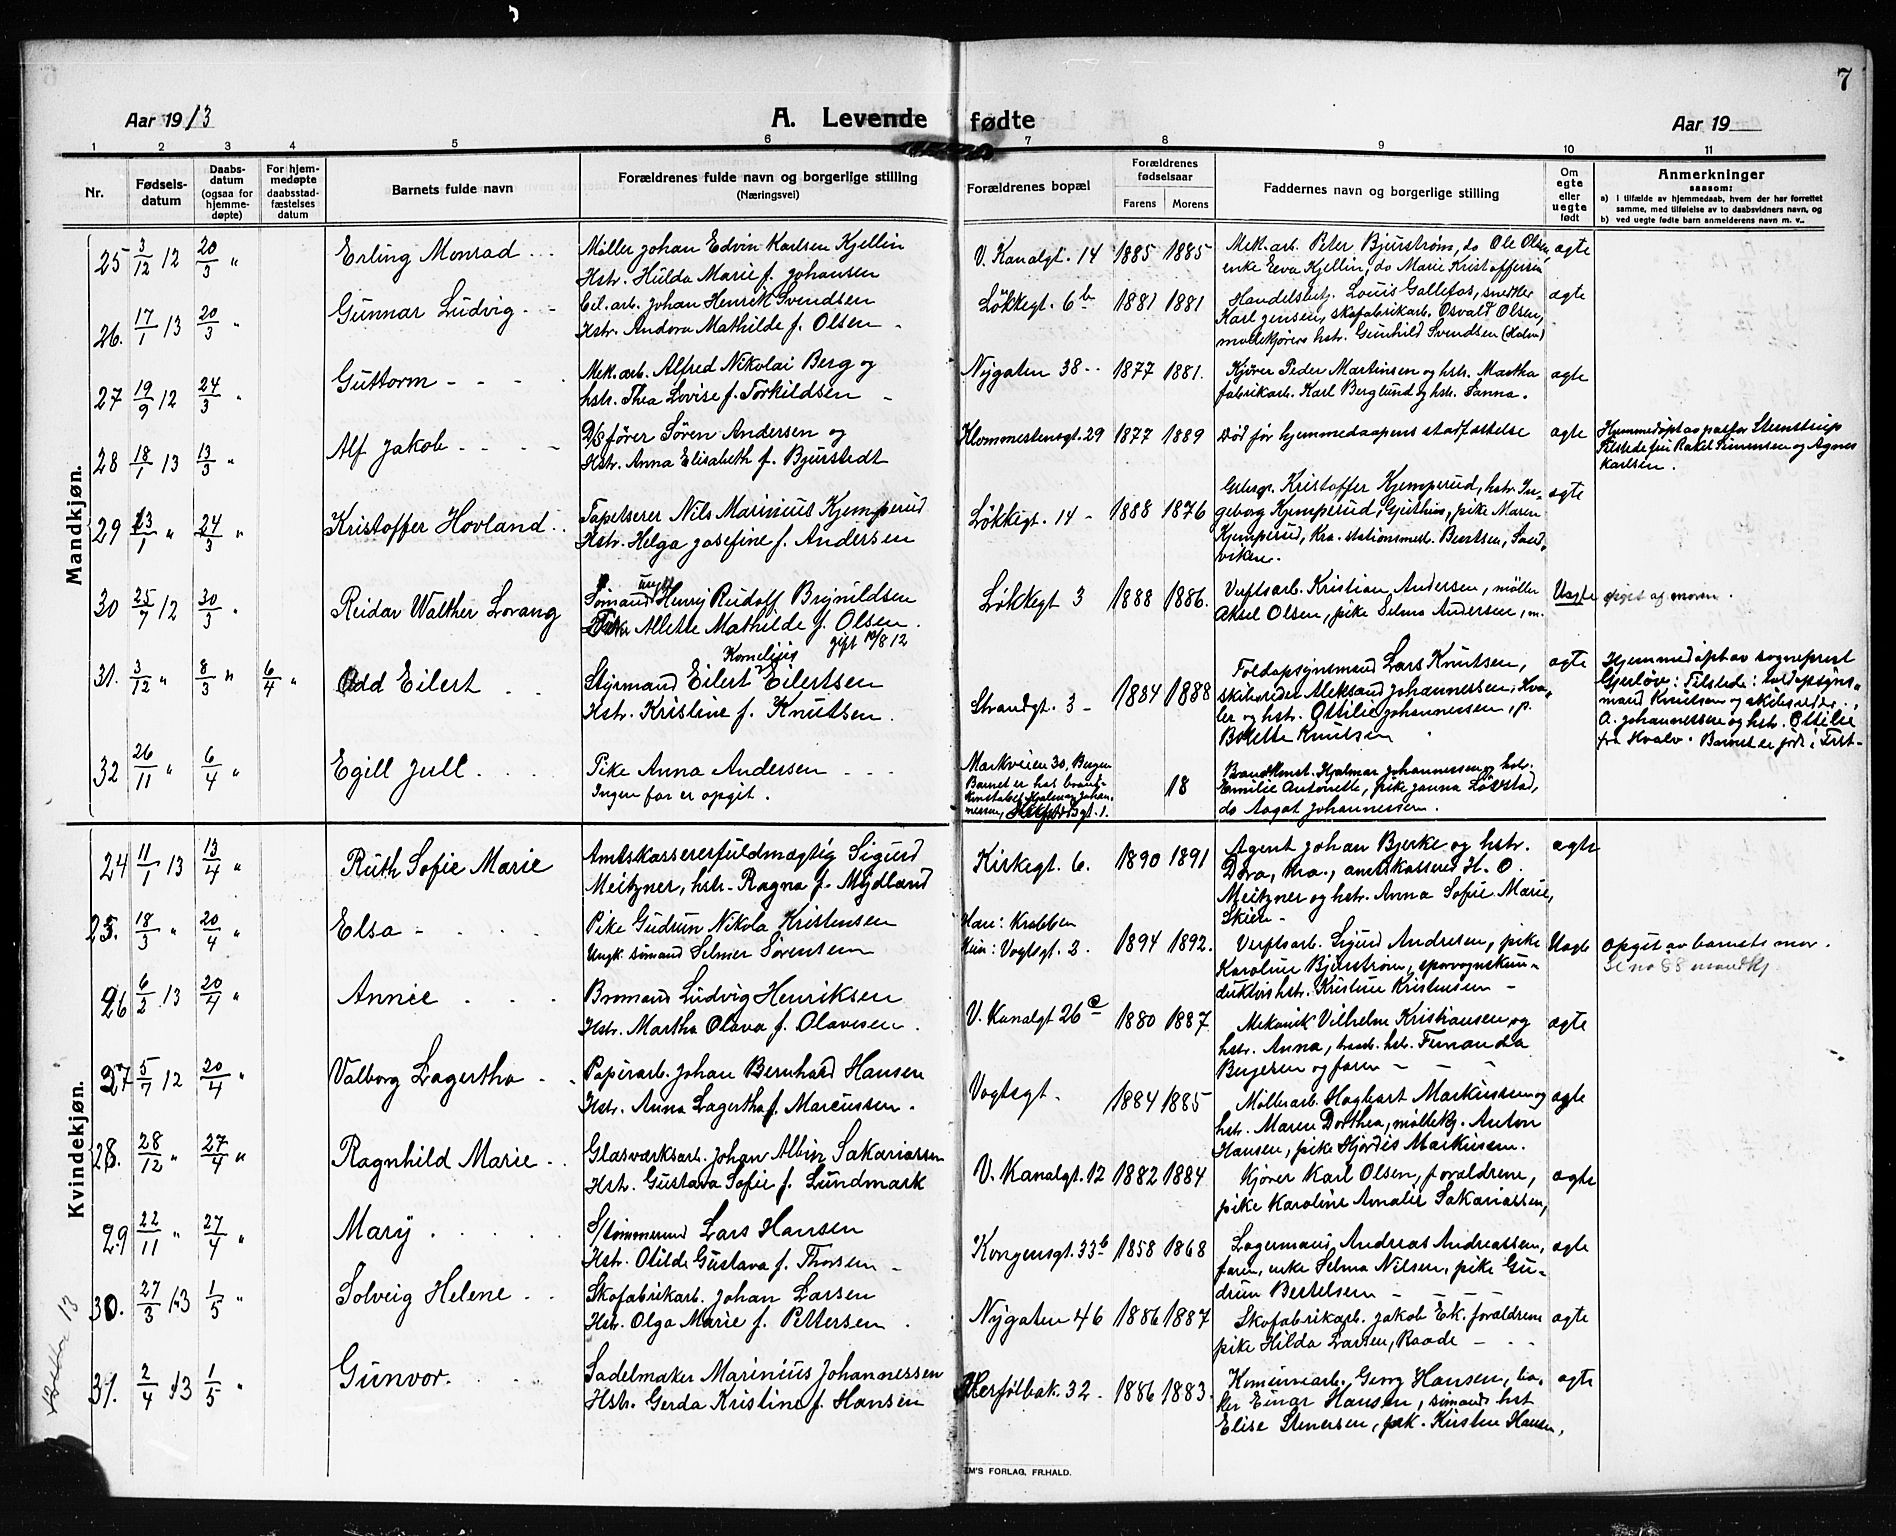 7
Aar 1913
A. Levende fødte
Aar 19
1 2 3 4 5 6 7 8 9 10 11
Nr.
Fødsels-
datum
Daabs-
datum
(ogsaa for
hjemme-
døpte)
For hjem-
medøpte
daabsstad-
fæstelses
datum
Barnets fulde navn
Forældrenes fulde navn og borgerlige stilling
(Næringsvei)
Forældrenes bopæl
Forældrenes
fødselsaar
Farens Morens
Faddernes navn og borgerlige stilling
Om
egte
eller
uegte
født
Anmerkninger
saasom:
a) i tilfælde av hjemmedaab, hvem der har forrettet
samme, med tilføielse av to daabsvidners navn, og
b) ved uegte fødte barn anmelderens navn m. v..
Mandkjøn.
25 3/12 12 20/3 " Erling Monrad
Møller Johan Edvin Karlsen Kjellin
Hstr. Hulda Marie f. Johansen
V. Kanalgt. 14 1885 1885
Mek. arb. Peter Bjurstrøm, do Ole Olsen,
enke Eeva Kjellin, do Marie Kristoffersen
ægte
26. 17/1 13 20/3 " Gunnar Ludvig
Cil. arb. Johan Henrik Svendsen
Hstr. Andora Mathilde f. Olsen
Løkkegt. 6b 1881 1881
Handelsbetj. Louis Gallefos, snedker
Karl Jensen, skofabrikarb. Osvald Olsen,
hstr. Gunhild Svendsen
ægte
27 19/9 12 24/3 " Guttorm
Mek. arb. Alfred Nikolai Berg og
hstr. Thea Lovise f. Torkildsen
Nygaten 38 1877 1881.
Kjører Peder Martinsen og hstr. Martha
fabrikarb. Karl Berglund og hstr. Sanna.
ægte
28 18/1 13 13/3 " Alf Jakob
D/S fører Søren Andersen og
Hstr. Anna Elisabeth f. Bjurstedt
Klommestensgt. 29 1877 1889
Død før hjemmedaapens stadfæstelse
ægte
Hjemmedøpt av pastor Stenstrup
Tilstede frk Rakel Simensen og Agnes
Karlsen.
29 23/1 " 24/3 " Kristoffer Hovland
Tapetserer Nils Marinius Kjemperud
Hstr. Helga Josefine f. Andersen
Løkkegt. 14 1888 1876
Kristoffer Kjemperud, hstr. In-
geborg Kjemperud, pike Maren
Kjemperud, Kra. stationsmest. Berntsen, Sand-
viken.
ægte
30 25/7 12 30/3 " Reidar Walther Lorang
Sømand ungk. Henry Rudolf Brynildsen
Pike Alette Mathilde f. Olsen.
gift 10/8 12
Løkkegt 3 1888 1886.
Verftsarb. Kristian Andersen, møller
Aksel Olsen, pike Selma Andersen, m.
Uægte opgit af moren.
31. 3/12 " 8/3 " 6/4 " Odd Eilert
Styrmand Eilert Kornelius Eilertsen
Hstr. Kristine f. Knutsen.
Strandgt. 3 1884 1888
Toldopsynsmand Lars Knutsen,
skibsreder Aleksand. Johannessen, Hva-
ler og hstr. Ottilie Johannessen, p.
Bolette Knutsen
ægte
Hjemmedøpt av sogneprest
Gjerløv: Tilstede: toldopsyns-
mand Knutsen og skibsreder
A. Johannessen og hstr. Ottilie
fra Hvaler. Barnet er født i Frst-
32 26/11 " 6/4 " Egill Jull
Pike Anna Andersen
Ingen far er opgit.
Markveien 30, Bergen
Barnet er hos brand-
konstabel Hjalmar Johan-
nessen, gt. 1.
18
Brandkonst. Hjalmar Johannessen og hstr.
Emilie Antonette, pike Janna Løkstad,
do Aagot Johannessen.
Kvindekjøn.
24 11/1 13 13/4 " Ruth Sofie Marie
Amtskassererfuldmægtig Sigurd
Meitzner, hstr. Ragna f. Mydland
Kirkegt. 6. 1890 1891
Agent Johan Bjerke og hstr.
Dora, Kra., amtskasserer H. O.
Meitzner og hstr. Anna Sofie Marie,
Skien
ægte
25. 18/3 " 20/4 " Elsa
Pike Gudrun Nikola Kristensen
Ungk. sømand Selmer Sørensen
Han: Krabben
Hun: Vogtsgt. 2. 1894 1892.
Verftsarb. Sigurd Andresen, pike
Karoline Bjurstrøm, sporvognskon-
duktørs hstr. Kristine Kristensen
Uægte
Opgit av barnets mor.
Se no 88 mandkj.
26 6/2 13 20/4 " Annie
Bromand Ludvig Henriksen
Hstr. Martha Olava f. Olavesen.
V. Kanalgt 26 1880 1887
Mekanik Vilhelm Kristiansen og
hstr. Anna, hstr. Fernanda
Bergersen og faren
ægte
27 5/7 12 20/4 " Valborg Lagertha
Papirarb. Johan Bernhard Hansen
Hstr. Anna Lagertha f. Marcussen.
Vogtsgt. 1884 1885
Møllearb. Hagbart Markussen og
hstr. Maren Dorthea, møllekj. Anton
Hansen, pike Hjørdis Markussen.
ægte
28. 28/12 " 27/4 " Ragnhild Marie
Glasværksarb. Johan Albin Sakariassen
Hstr. Gustava Sofie f. Lundmark
V. Kanalgt. 12 1882 1884
Kjører Karl Olsen, forældrene,
pike Karoline Amalie Sakariassen,
ægte
29 22/11 " 27/4 " Mary
S/tømmermd Lars Hansen
Hstr. Otilde Gustava f. Thorsen
Kongensgt. 33b 1858 1868
Lagermand Andreas Andreassen,
faren, enke Selma Nilsen, pike Gu-
drun Bertelsen
ægte
30. 27/3 13 1/5 " Solveig Helene
Skofabrikarb. Johan Larsen
Hstr. Olga Marie f. Pettersen
Nygaten 46 1886 1887
Skofabrikarb. Jakob Ek. forældrene
pike Hilda Larsen, Raade
ægte
31. 2/4 13 1/5 " Gunvor.
Sadelmaker Marinius Johannessen
Hstr. Gerda Kristine f. Hansen
Herfølbak. 32 1886 1883.
Komunearb. Georg Hansen, ba-
ker Einar Hansen, sømands hst
Elise Stenersen, pik. Kirsten Hansen,
ægte
M'S FORLAG, FR.HALD.